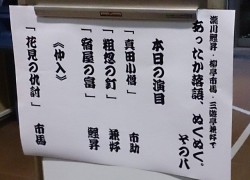 瀧川鯉昇、柳亭市馬、三遊亭兼好で
あったか落語、ぬくぬく。その八
本日の演目
「真田小僧」 市助
「粗忽の釘」 兼好
「宿屋の富」 鯉昇
《仲入》
「花見の仇討」 市馬